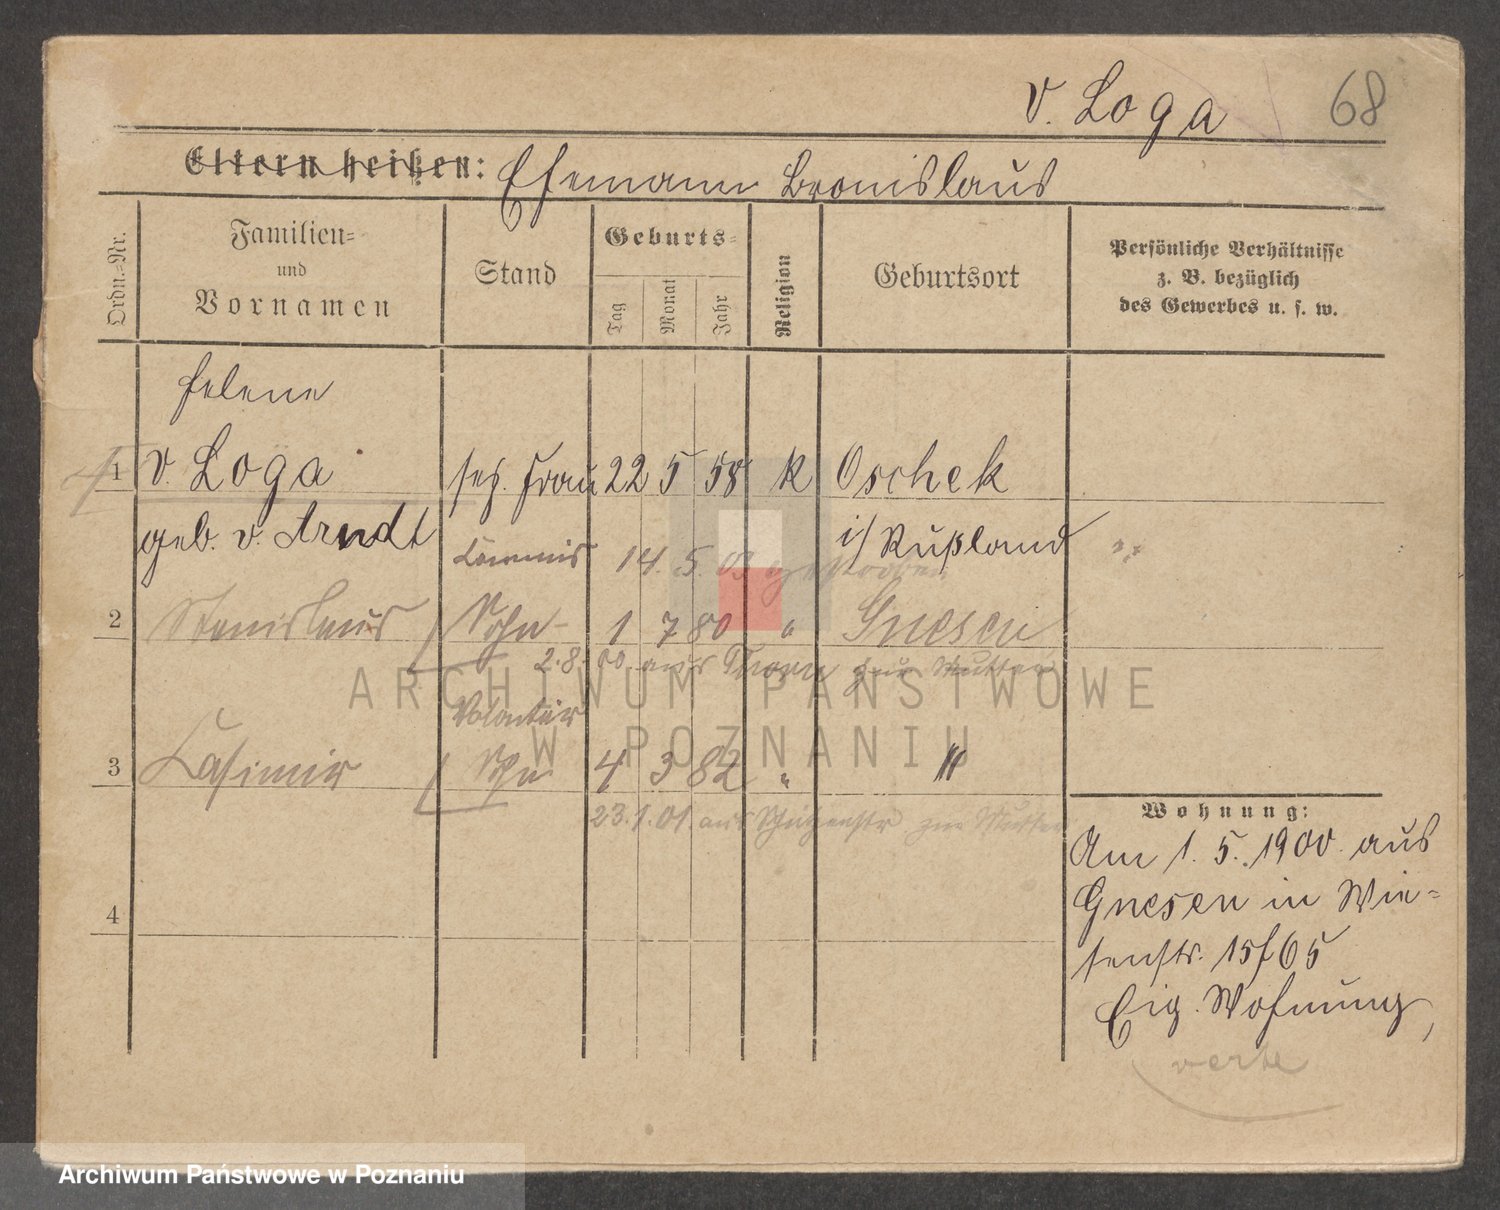 v. Loga 68
Eltern heißen: Ehemann Bronislaus
Ordn.-Nr.
Familien- und Vornamen
Stand
Geburts-
Tag Monat Jahr
Religion
Geburtsort
Persönliche Verhältnisse
z. B. bezüglich
des Gewerbes u. s. w.
Helene
1 v. Loga sep. Frau 22 5 58 k Oschek
geb. v. Arndt i/ Rußland
Commis 14. 5. 03 gestorben
2 Stanislaus Sohn 1 7 80 " Gnesen
2.8.00 aus Thorn zur Mutter
Volontär
3 Casimir Sohn 4 3 82 " "
23.1.01. aus Schützenstr zur Mutter
4
Wohnung:
Am 1. 5. 1900. aus
Gnesen in Wie-
senstr. 15f65
Eig. Wohnung,
verte
ARCHIWUM PAŃSTWOWE
W POZNANIU
Archiwum Państwowe w Poznaniu